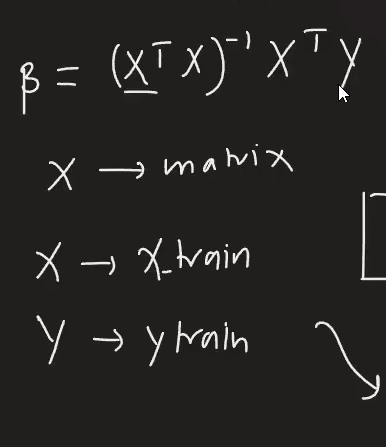 β = (X^T X)^-1 X^T Y
X → matrix
X → X_train
Y → y train